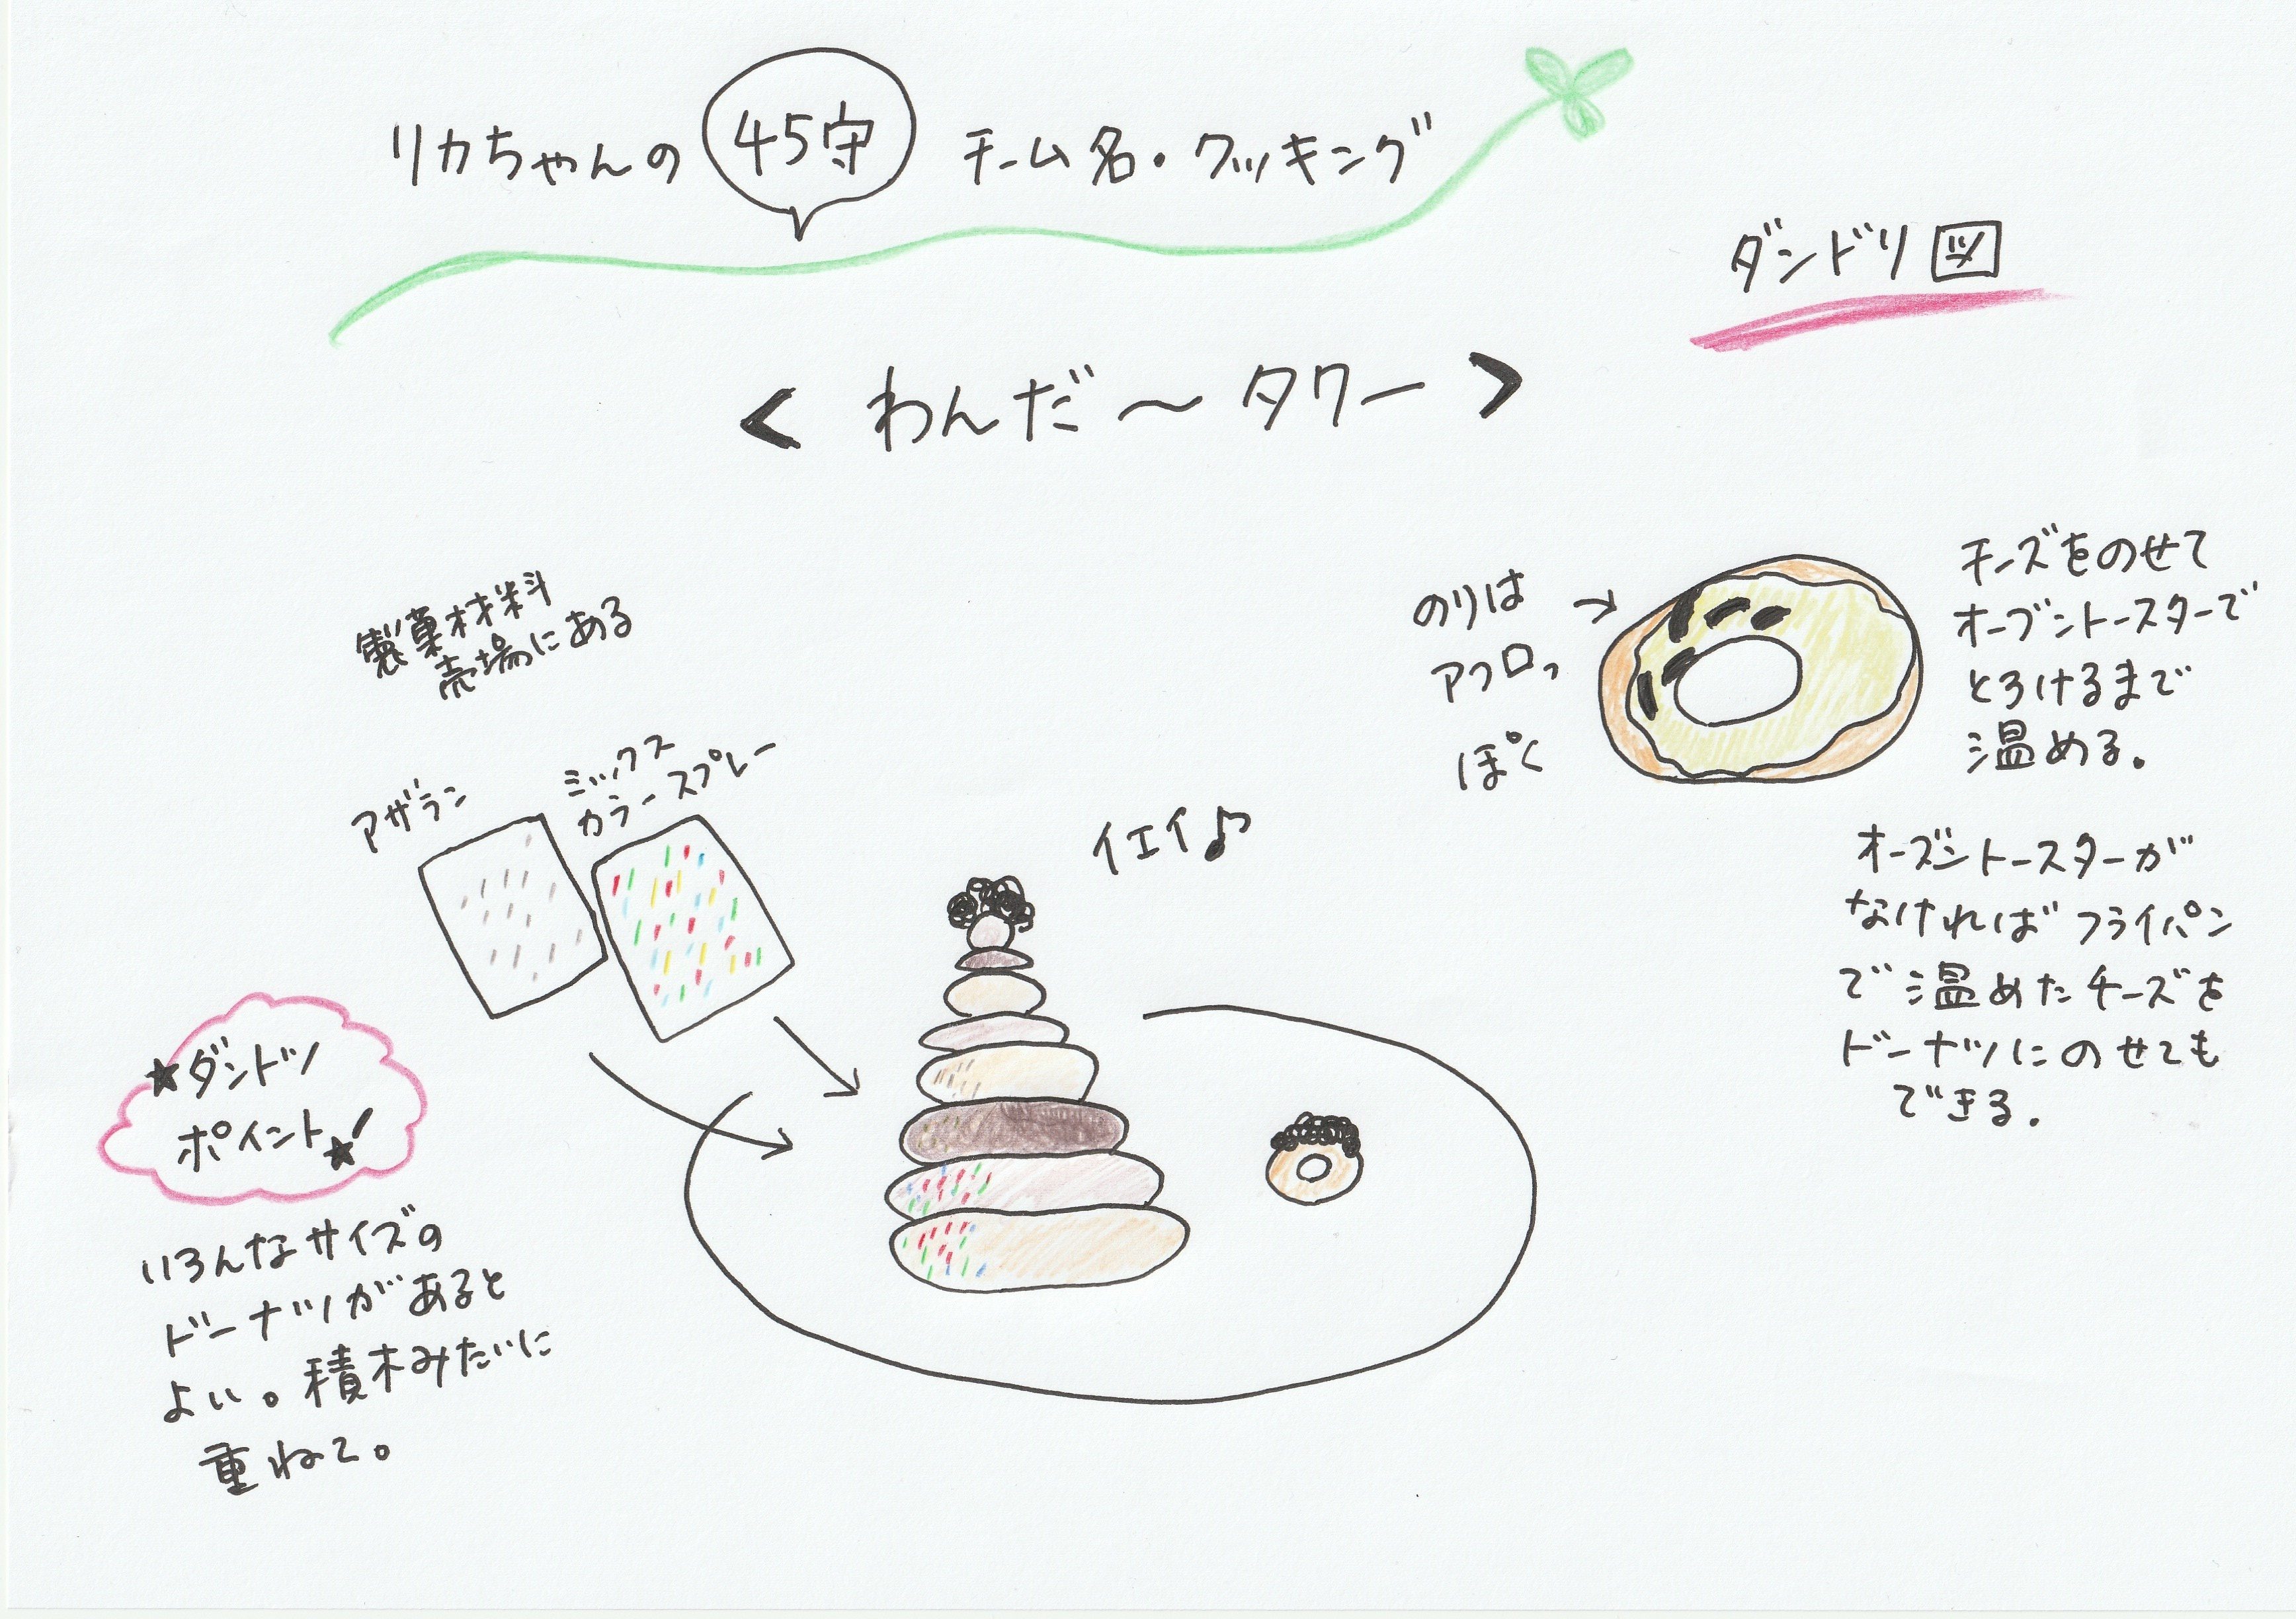 リカちゃんの 45守 チーム名・クッキング
ダンドリ図
< わんだ〜タワー >
製菓材料
売場にある
アザラン
ミックス
カラースプレー
イエイ♪
のりは
アフロっ
ぽく
チーズをのせて
オーブントースターで
とろけるまで
温める。
オーブントースターが
なければフライパン
で温めたチーズを
ドーナツにのせても
できる。
★ダンドリ
ポイント★!
いろんなサイズの
ドーナツがあると
よい。積木みたいに
重ねて。